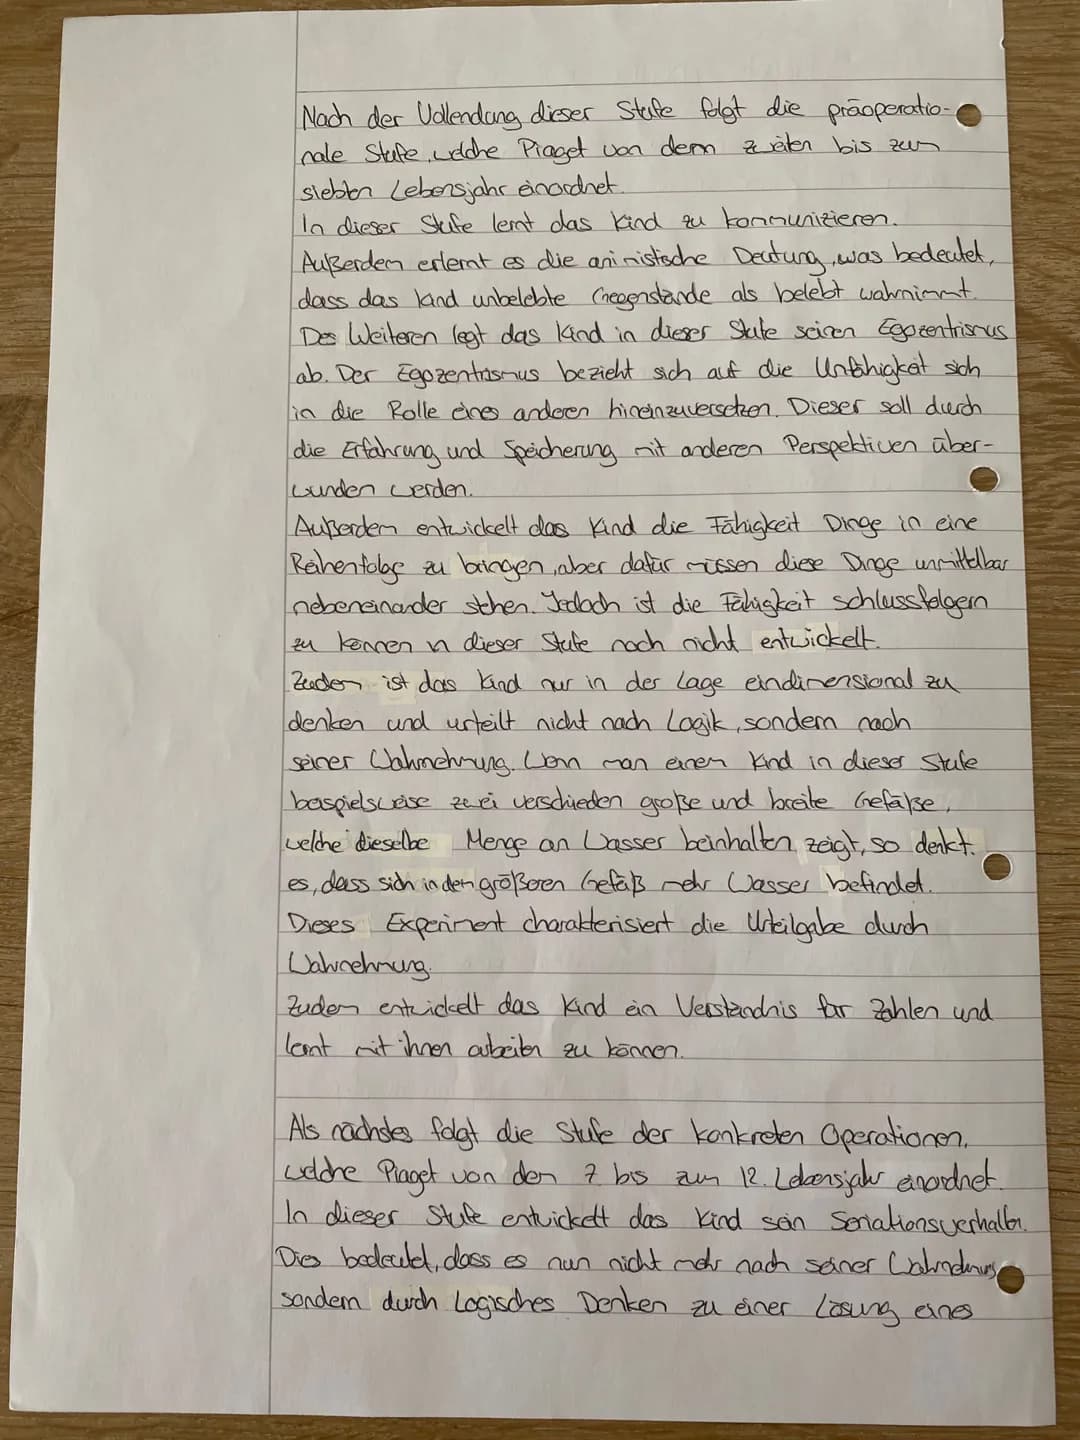 Nach der Vollendung dieser Stufe folgt die präoperatio-
nale Stufe, welche Piaget von dem zweiten bis zum
siebten Lebensjahr einordnet.
In dieser Stufe lernt das Kind zu kommunizieren.
Außerdem erlernt es die animistische Deutung, was bedeutet,
dass das Kind unbelebte Gegenstände als belebt wahrnimmt.
Des Weiteren legt das Kind in dieser Stufe seinen Egozentrismus
ab. Der Egozentrismus bezieht sich auf die Unfähigkeit sich
in die Rolle eines anderen hineinzuversetzen. Dieser soll durch
die Erfahrung und Speicherung mit anderen Perspektiven über-
wunden werden.
Außerdem entwickelt das Kind die Fähigkeit Dinge in eine
Reihenfolge zu bringen, aber dafür müssen diese Dinge unmittelbar
nebeneinander stehen. Jedoch ist die Fähigkeit schlussfolgern
zu können in dieser Stufe noch nicht entwickelt.
Zudem ist das Kind nur in der Lage eindimensional zu
denken und urteilt nicht nach Logik, sondern nach
seiner Wahrnehmung. Wenn man einem Kind in dieser Stufe
beispielsweise zwei verschieden große und breite Gefäße,
welche dieselbe Menge an Wasser beinhalten zeigt, so denkt
es, dass sich in dem größeren Gefäß mehr Wasser befindet.
Dieses Experiment charakterisiert die Urteilgabe durch
Wahrnehmung.
Zudem entwickelt das Kind ein Verständnis für Zahlen und
lernt mit ihnen arbeiten zu können.
Als nächstes folgt die Stufe der konkreten Operationen,
welche Piaget von dem 7 bis zum 12. Lebensjahr einordnet.
In dieser Stufe entwickelt das Kind sein Seriationsverhalten.
Dies bedeutet, dass es nun nicht mehr nach seiner Wahrnehmung
sondern durch Logisches Denken zu einer Lösung eines